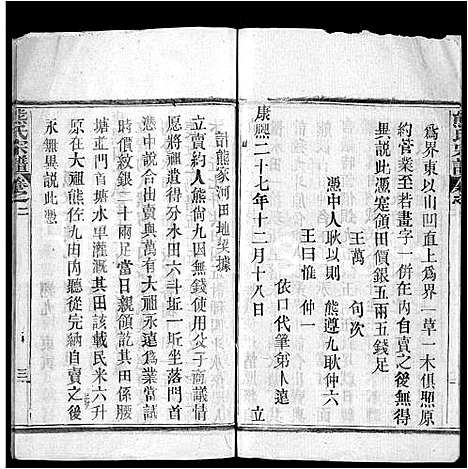 為界東以山凹直上為界一草一木俱照原
約管業至若畫字一併在內自賣之後無得
異説此憑寔領田價銀五兩五錢足
王萬 句次
憑中人耿以則 熊遵九耿仲六
王曰惟 仲一
依口代筆弟人遠
康熙二十七年十二月十八日 立
熊氏宗譜
計熊家河田地契據
立賣約人熊尚九因無錢使用父子商議情
愿將祖遺得分水田六斗坵一坵坐落門首
憑中説合出賣與萬大禰永遠為業當試
時價紋銀三十兩正當日親領訖其田係腰
塘並門首塘水旱澆灌其田該載民米六升
原在大禰熊佐九由內聽後完納自賣之後
永無異説此憑
熊氏宗譜 卷之二
三